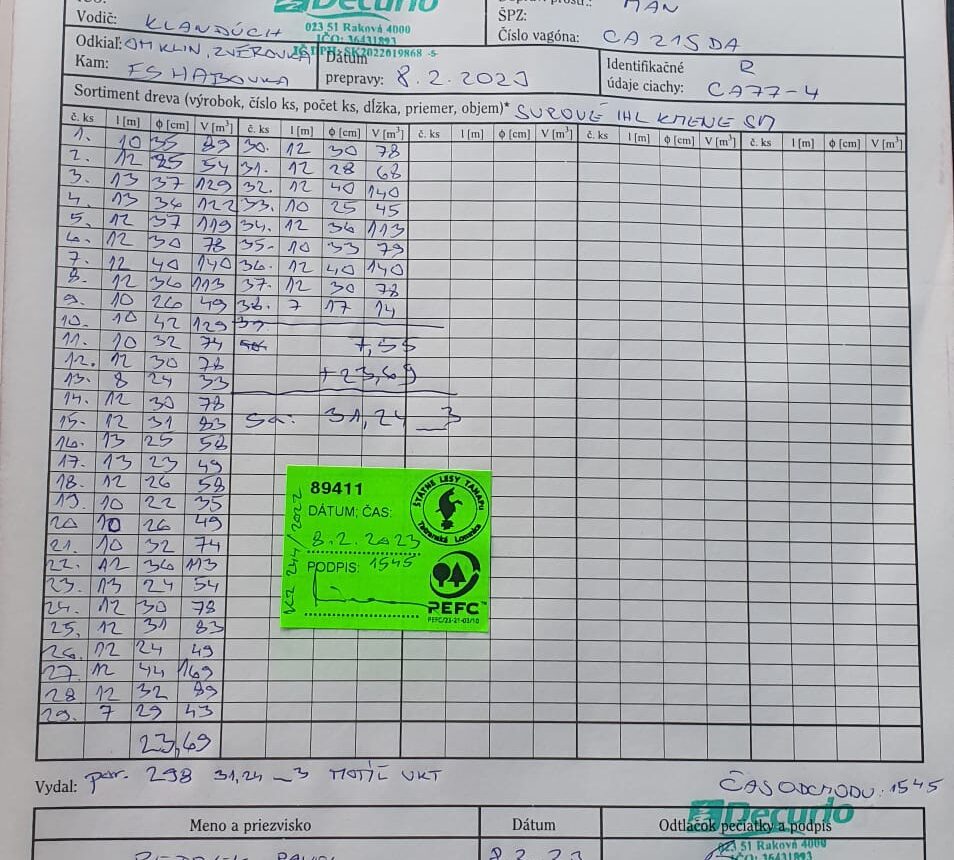 Decurio
Vodič: KLANDÚCH
MAN
023 51 Raková 4000
ŠPZ:
IČO: 36431893
Číslo vagóna: CA 215 DA
Odkiaľ: OM KLIN, ZVEROVKA
IČ DPH: SK2022019868 -5-
Kam: ES HABOVKA
Dátum
prepravy: 8.2.2023
Identifikačné R
údaje ciachy: CA77-4
Sortiment dreva (výrobok, číslo ks, počet ks, dĺžka, priemer, objem)* SUROVÉ IHL KMENE SM
č. ks l [m] ϕ [cm] V [m³] č. ks l [m] ϕ [cm] V [m³] č. ks l [m] ϕ [cm] V [m³] č. ks l [m] ϕ [cm] V [m³] č. ks l [m] ϕ [cm] V [m³]
1. 10 35 89 30. 12 30 78
2. 12 25 54 31. 12 28 68
3. 13 37 129 32. 12 40 140
4. 13 36 122 33. 10 25 45
5. 12 37 119 34. 12 36 113
6. 12 30 78 35. 10 33 79
7. 12 40 140 36. 12 40 140
8. 12 36 113 37. 12 30 78
9. 10 26 49 38. 7 17 14
10. 10 42 129 39
11. 10 32 74 7,55
12. 12 30 78 +23,69
13. 8 24 33
14. 12 30 78
15. 12 31 83 Sa: 31,24 _3
16. 13 25 58
17. 13 23 49
18. 12 26 58
19. 10 22 35
20 10 26 49
21. 10 32 74
22. 12 36 113
23. 13 24 54
24. 12 30 78
25. 12 31 83
26. 12 24 49
27. 12 44 169
28 12 32 89
29. 7 29 43
23,69
89411
DÁTUM; ČAS:
8.2.2023
PODPIS: 1545
KZ 244/2022
ŠTÁTNE LESY TANAPU
Tatranská Lomnica
PEFC™
PEFC/23-21-03/10
Vydal: por. 298 31,24 _3 MOTÍĽ VKT
ČAS ODCHODU: 1545
Meno a priezvisko Dátum Odtlačok pečiatky a podpis
Decurio
8.2.23
023 51 Raková 4000
IČO: 36431893